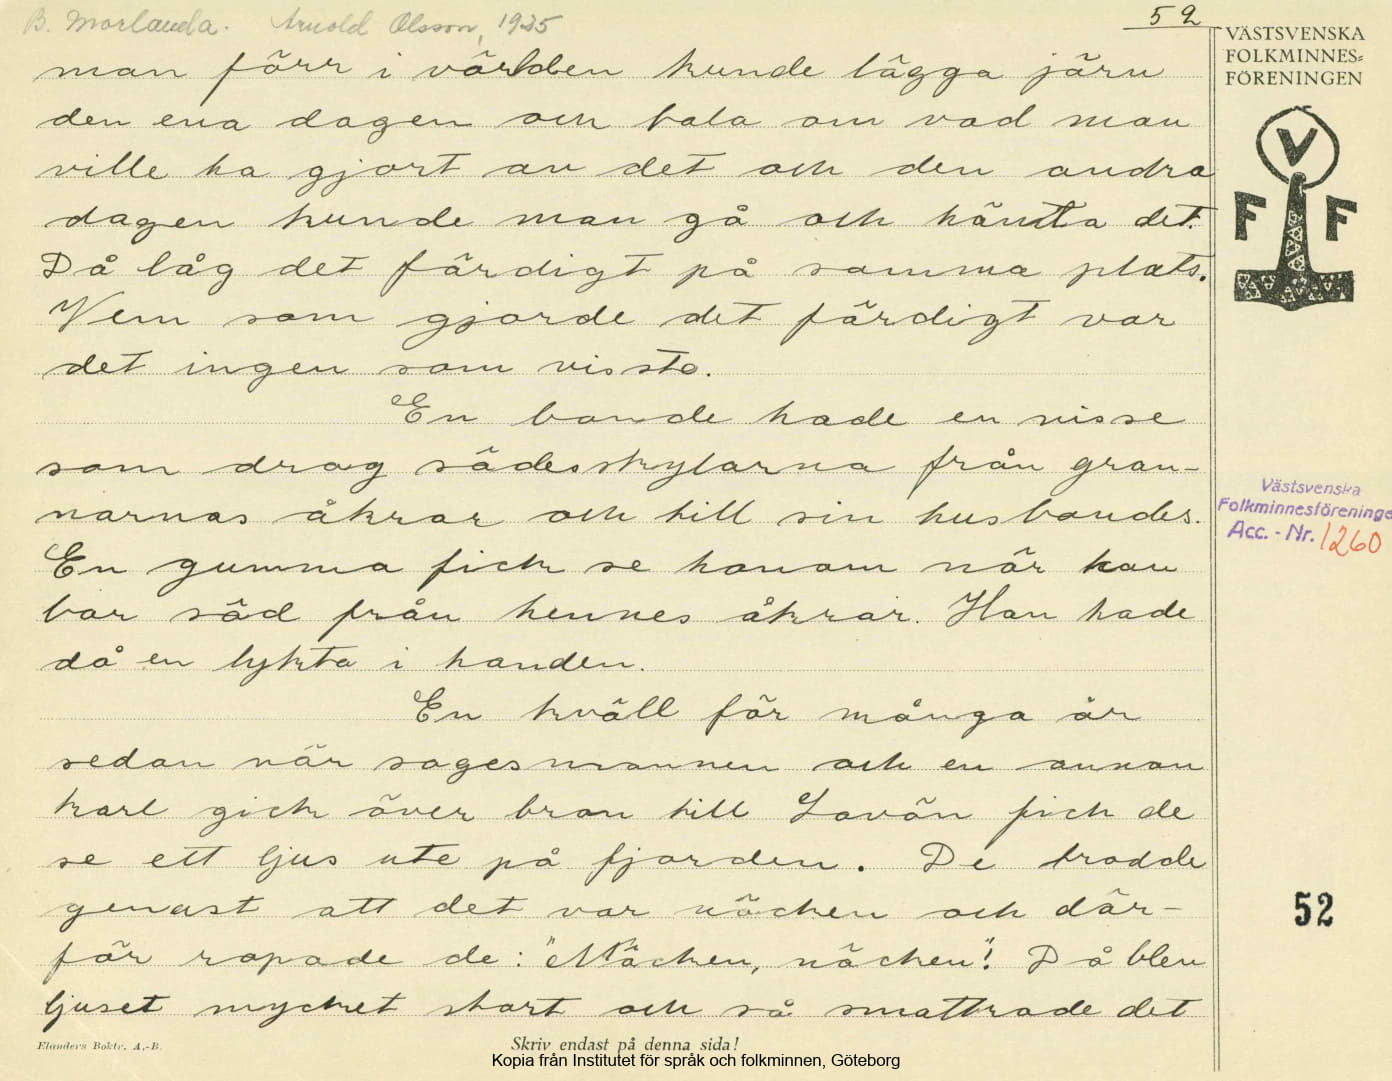 B. Morlanda. Arnold Olsson, 1925
52
VÄSTSVENSKA
FOLKMINNES=
FÖRENINGEN
V
F F
man förr i världen kunde lägga järn
den ena dagen och tala om vad man
ville ha gjort av det och den andra
dagen kunde man gå och hämta det.
Då låg det färdigt på samma plats.
Vem som gjorde det färdigt var
det ingen som visste.
En bonde hade en nisse
som drog sädesskylarna från gran-
narnas åkrar och till sin husbondes.
En gumma fick se honom när han
bar säd från hennes åkrar. Han hade
då en lykta i handen.
En kväll för många år
sedan när sagesmannen och en annan
karl gick över bron till Lavön fick de
se ett ljus ute på fjorden. De trodde
genast att det var näcken och där-
för ropade de: "Näcken, näcken"! Då blev
ljuset mycket stort och så smattrade det
Västsvenska
Folkminnesföreninge
Acc. - Nr. 1260
52
Elanders Boktr. A.-B.
Skriv endast på denna sida!
Kopia från Institutet för språk och folkminnen, Göteborg